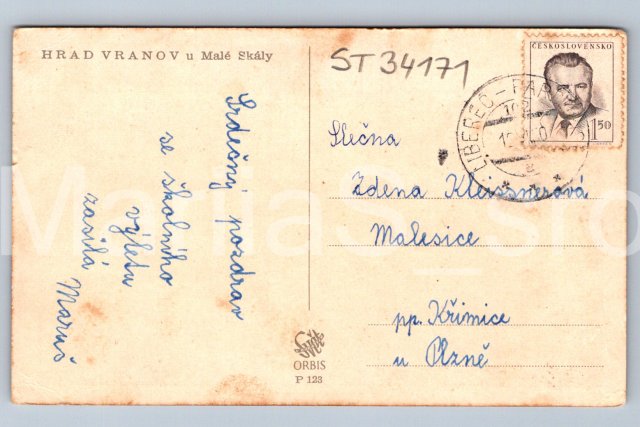 HRAD VRANOV u Malé Skály
ST 34171
ČESKOSLOVENSKO
1.50
LIBEREC
Srdečný pozdrav
se školního
výletu
zasílá
Maruš
Slečna
Zdena Kleissnerová
Malesice
pp. Křimice
u Plzně
Svět
ORBIS
P 123